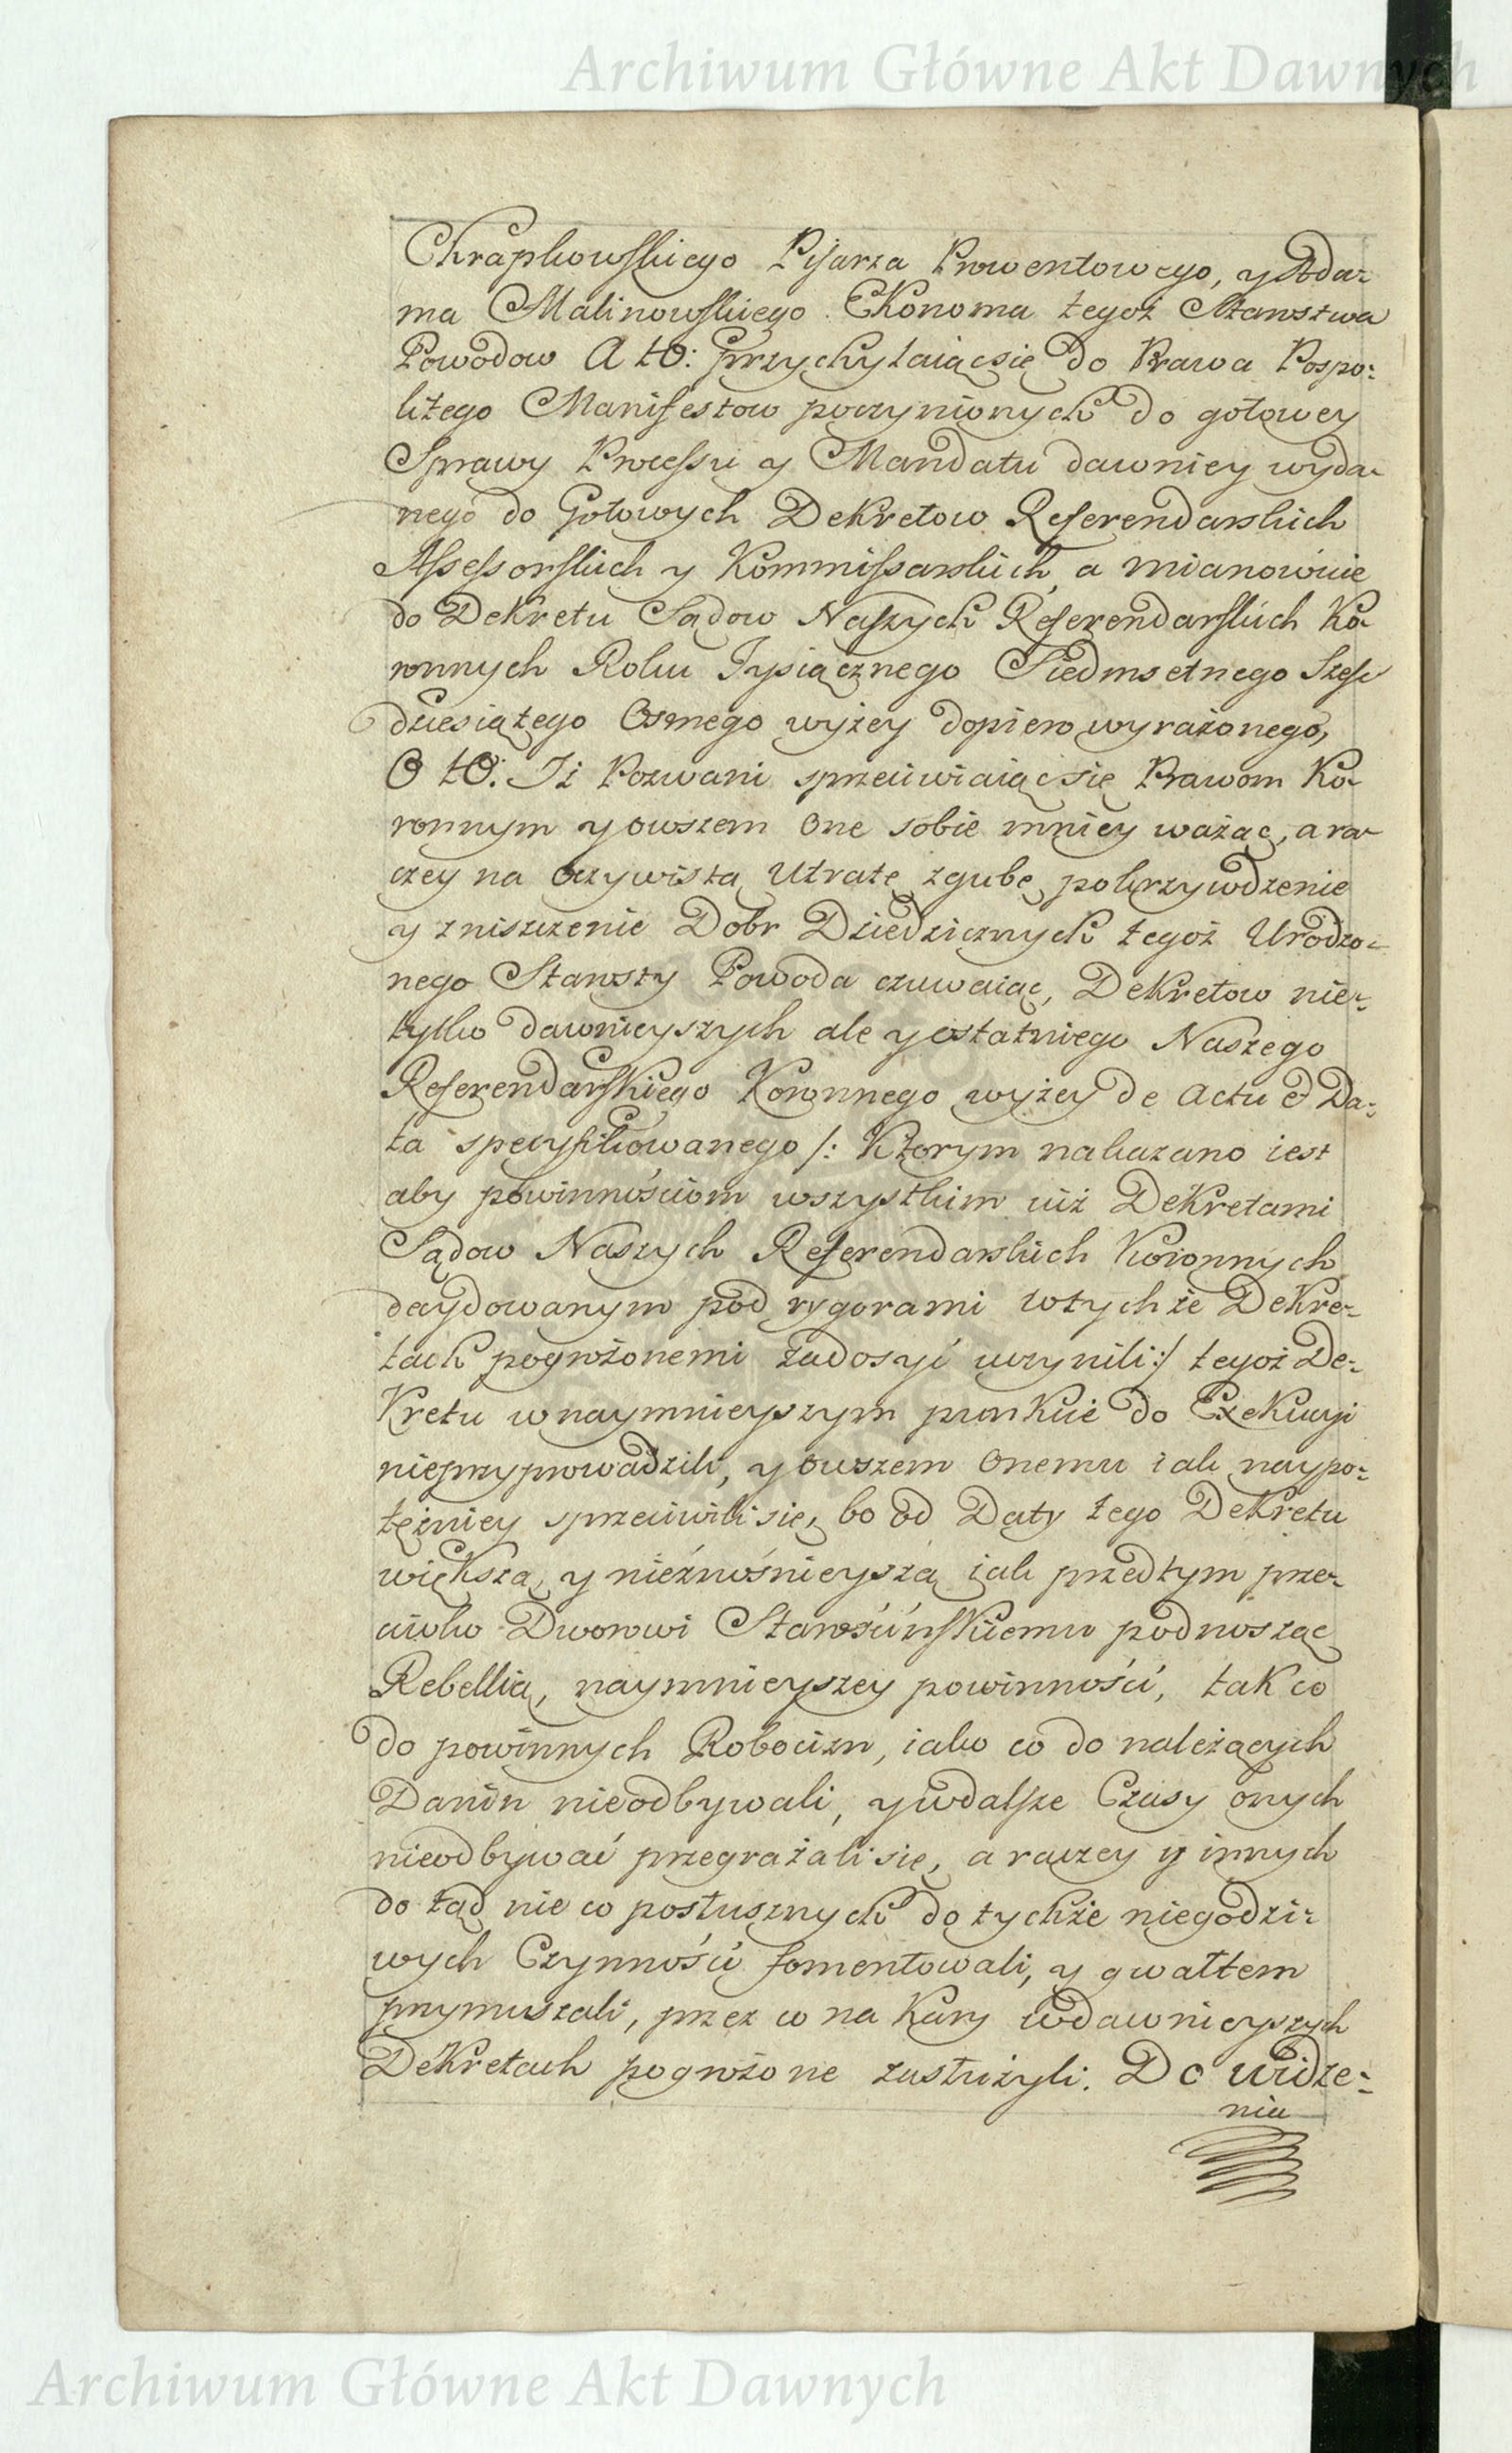 Archiwum Główne Akt Dawnych
Chrapkowskiego Pisarza Prowentowego, y Ada-
ma Malinowskiego Ekonoma tegoż Starostwa
Powodow A to: przychylaiąc się do Prawa Pospo-
litego Manifestow poczynionych do gotowey
Sprawy Processu y Mandatu dawniey wyda-
nego do Gotowych Dekretow Referendarskich
Assessorskich y Kommissarskich, a mianowicie
do Dekretu Sądow Naszych Referendarskich Ko-
ronnych Roku Tysiącznego Siedmsetnego Szesc
dziesiątego Osmego wyżey dopiero wyrażonego,
O to: Iż Pozwani sprzeciwiaiąc się Prawom Ko-
ronnym y owszem one sobie mniey ważąc, a ra-
czey na Oczywistą Utratę zgubę pokrzywdzenie
y zniszczenie Dobr Dziedzicznych tegoż Urodzo-
nego Starosty Powoda czuwaiąc, Dekretow nie-
tylko dawnieyszych ale y ostatniego Naszego
Referendarskiego Koronnego wyżey de Actu & Da-
ta specyfikowanego /: Ktorym nakazano iest
aby powinnościom wszystkim iuż Dekretami
Sądow Naszych Referendarskich Koronnych
decydowanym pod rygorami w tychże Dekre-
tach pogrożonemi zadosyć uczynili :/ tegoż De-
Kretu w naymnieyszym punkcie do Exekucyi
nieprzyprowadzili, y owszem onemu iak naypo-
tężniey sprzeciwili się, bo od Daty tego Dekretu
większą y nieźnośnieyszą iak przedtym prze-
ciwko Dworowi Starościńskiemu podnosząc
Rebellią, naymnieyszey powinności, tak co
do powinnych Robocizn, iako co do należących
Danin nieodbywali, y w dalsze Czasy onych
nieodbywać przegrażali się, a raczey y innych
do tąd nie co posłusznych do tychże niegodzi-
wych Czynności fomentowali, y gwałtem
przymuszali, przez co na Kary w dawnieyszych
Dekretach pogrożone zasłużyli. Do widze-
nia
Archiwum Główne Akt Dawnych